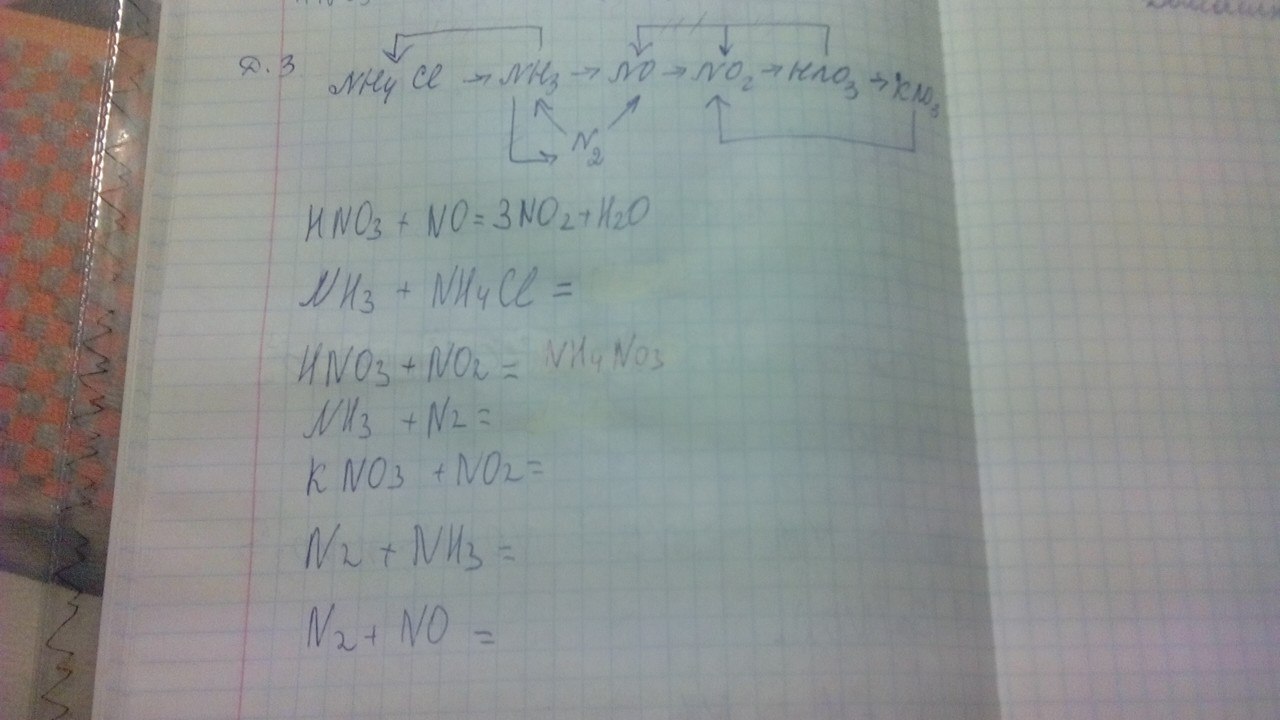 Д.З
NH₄Cl → NH₃ → NO → NO₂ → HNO₃ → KNO₃
N₂
HNO₃ + NO = 3NO₂ + H₂O
NH₃ + NH₄Cl =
HNO₃ + NO₂ = NH₄NO₃
NH₃ + N₂ =
KNO₃ + NO₂ =
N₂ + NH₃ =
N₂ + NO =